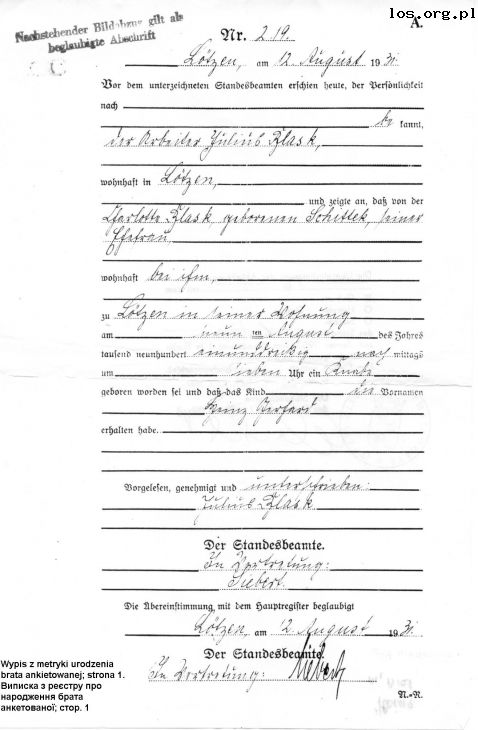 los.org.pl
Nachstehender Bildabzug gilt als
beglaubigte Abschrift
A.
Nr. 219.
Lötzen, am 12. August 1931.
Vor dem unterzeichneten Standesbeamten erschien heute, der Persönlichkeit
nach
be kannt,
der Arbeiter Julius Klask,
wohnhaft in Lötzen,
und zeigte an, daß von der
Charlotte Klask, geborenen Schittek, seiner
Ehefrau,
wohnhaft bei ihm,
zu Lötzen in seiner Wohnung
am neun ten August des Jahres
tausend neunhundert einunddreißig nach mittags
um sieben Uhr ein Knabe
geboren worden sei und daß das Kind die Vornamen
Heinz Gerhard
erhalten habe.
Vorgelesen, genehmigt und unterschrieben:
Julius Klask
Der Standesbeamte.
In Vertretung:
Siebert.
Die Übereinstimmung mit dem Hauptregister beglaubigt
Lötzen, am 12. August 1931.
Der Standesbeamte.
In Vertretung: Siebert
N.-R.
Wypis z metryki urodzenia
brata ankietowanej; strona 1.
Виписка з реєстру про
народження брата
анкетованої; стор. 1